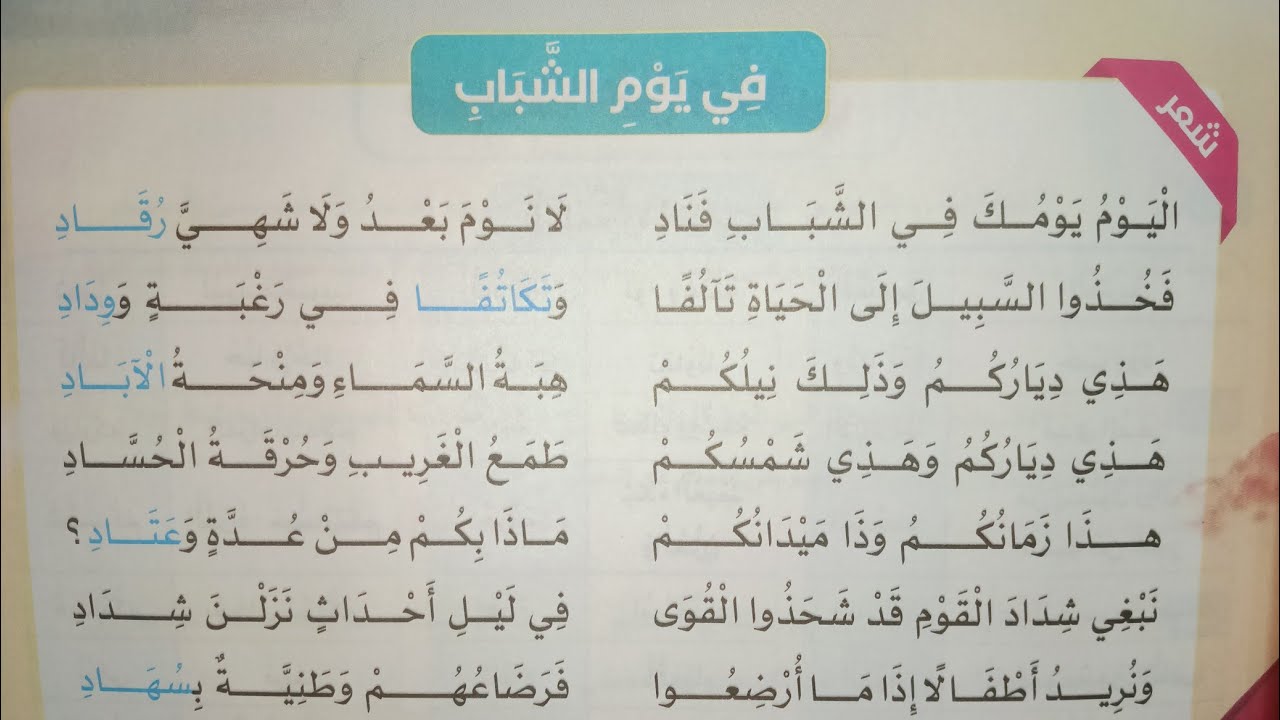 شعر
فِي يَوْمِ الشَّبَابِ
الْيَوْمُ يَوْمُكَ فِي الشَّبَابِ فَنَادِ لَا نَوْمَ بَعْدُ وَلَا شَهِيَّ رُقَادِ
فَخُذُوا السَّبِيلَ إِلَى الْحَيَاةِ تَآلُفًا وَتَكَاتُفًا فِي رَغْبَةٍ وَوِدَادِ
هَذِي دِيَارُكُمُ وَذَلِكَ نِيلُكُمْ هِبَةُ السَّمَاءِ وَمِنْحَةُ الْآبَادِ
هَذِي دِيَارُكُمُ وَهَذِي شَمْسُكُمْ طَمَعُ الْغَرِيبِ وَحُرْقَةُ الْحُسَّادِ
هذَا زَمَانُكُمُ وَذَا مَيْدَانُكُمْ مَاذَا بِكُمْ مِنْ عُدَّةٍ وَعَتَادِ؟
نَبْغِي شِدَادَ الْقَوْمِ قَدْ شَحَذُوا الْقُوَى فِي لَيْلِ أَحْدَاثٍ نَزَلْنَ شِدَادِ
وَنُرِيدُ أَطْفَالًا إِذَا مَا أُرْضِعُوا فَرَضَاعُهُمْ وَطَنِيَّةٌ بِسُهَادِ